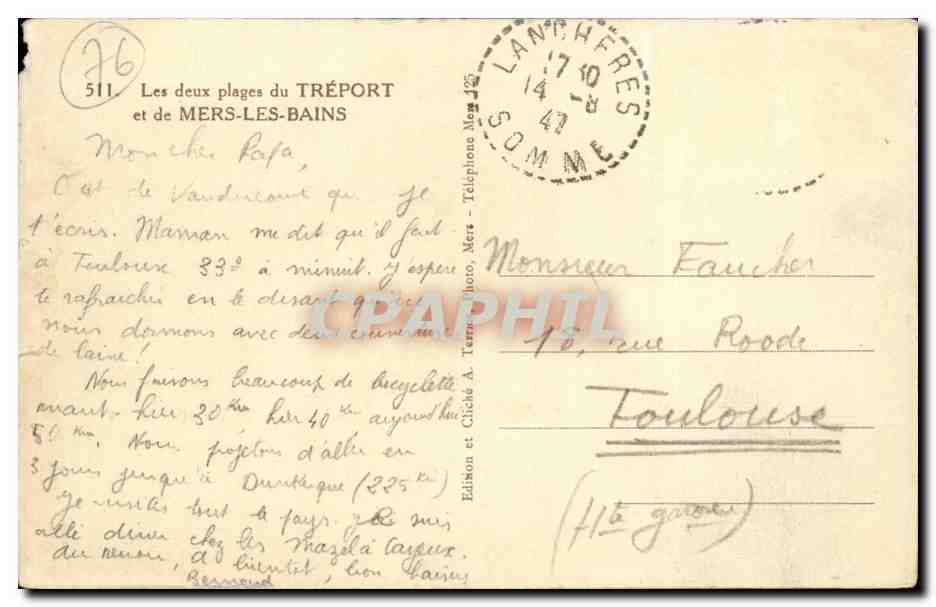 76
511. Les deux plages du TRÉPORT
et de MERS-LES-BAINS
Mon cher Papa,
C'est de Vaudricourt que je
t'écris. Maman me dit qu'il fait
à Toulouse 33° à minuit. J'espère
te rafraichir en te disant qu'ici
nous dormons avec deux couvertures
de laine !
Nous faisons beaucoup de bicyclette
avant-hier 30 Km hier 40 Km aujourd'hui
50 Km. Nous projetons d'aller en
3 jours jusqu'à Dunkerque (225 Km)
Je visite tout le pays. Je suis
allé diner chez les Mazel à Cayeux.
au revoir, à bientôt, bon baisers
Bernard
Edition et Cliché A. Terrier, Photo, Mers - Téléphone Mers 125
LANCHERES
17 30
14 - 8
47
SOMME
Monsieur Faucher
18, rue Roode
Toulouse
(Hte garonne)
CPAPHIL